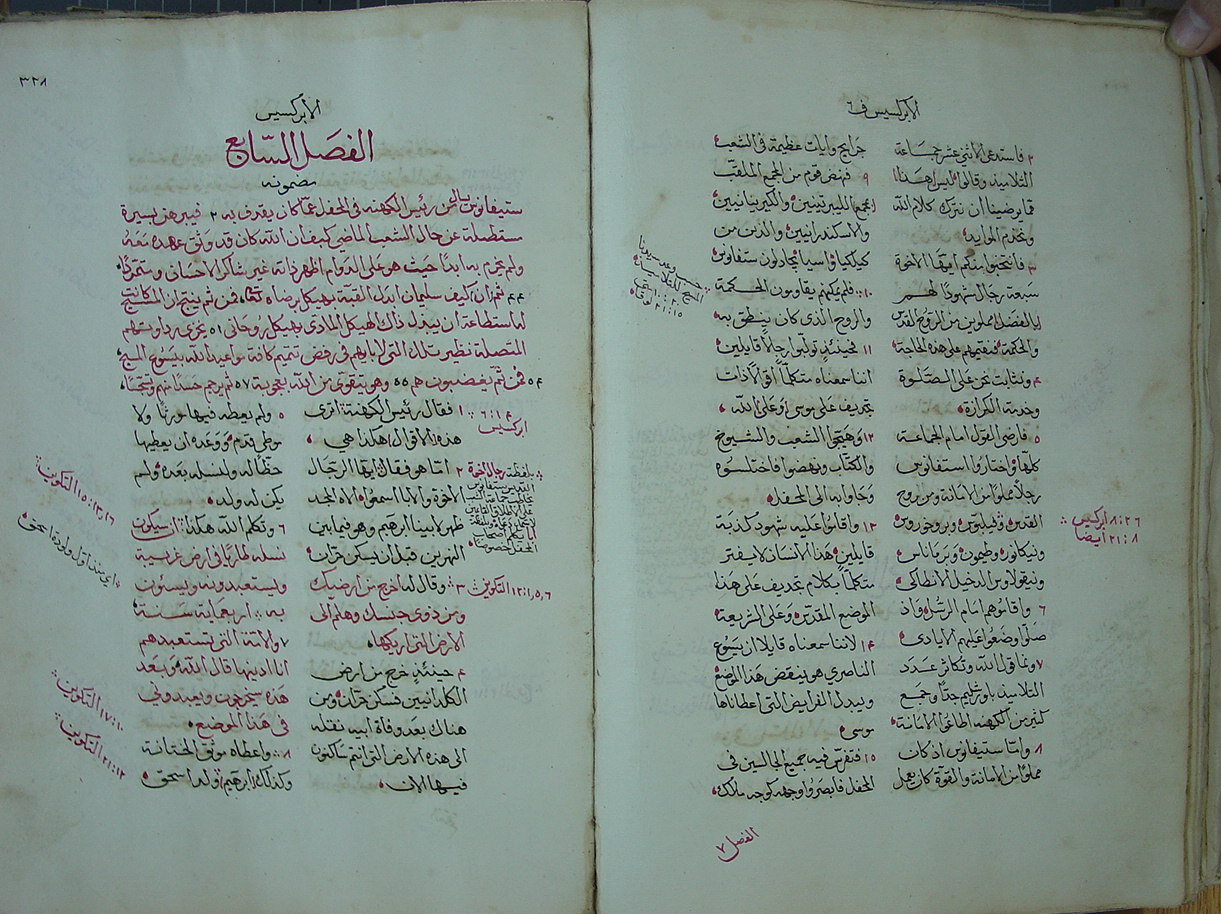 الابركسيس ف
٢ فاستدعى الاثني عشر جماعة
التلاميذ وقالوا ليس هذا
مما يرضينا ان نترك كلام الله
ونخدم الموايد
٣ فانتخبوا منكم ايها الاخوة
سبعة رجال شهودًا لهم
بالفضل مملوين من الروح القدس
والحكمة فنقيمهم على هذه الحاجة
٤ ونثابت نحن على الصلوة
وخدمة الكرازة
٥ فارضى القول امام الجماعة
كلها واختاروا استفانوس
رجلًا مملوًا من الامانة ومن روح
القدس وفيلبوس وبروخوروس
ونيكانور وطيمون وبرماناس
ونيقولاوس الدخيل الانطاكي
٦ واقاموهم امام الرسل واذ
صلّى وضعوا عليهم الايادي
٧ ونما قول الله وتكاثر عدد
التلاميذ باورشليم جدًا وجمع
كثير من الكهنة اطاعوا الامانة
٨ واما ستيفانوس اذ كان
مملوًا من الامانة والقوة كان يعمل
جرايح وايات عظيمة في الشعب
٩ فنهض قوم من المجمع الملقب
بمجمع الليبرتينيين والكيرينانيين
والاسكندرانيين والذين من
كيلكيا واسيا يجادلون ستفانوس
١٠ فلم يمكنهم يقاومون الحكمة
والروح الذي كان ينطق به
١١ فحينئذٍ توالبوا رجلًا قايلين
اننا سمعناه متكلمًا اقوالا ذات
تجديف على موسى وعلى الله
١٢ وهيّجوا الشعب والشيوخ
والكتّاب ونهضوا فاختلسوه
وجاوا به الى المحفل
١٣ واقاموا عليه شهود كذبة
قايلين هذا الانسان لا يفتر
متكلمًا بكلام تجديف على هذا
الموضع المقدس وعلى الشريعة
١٤ لاننا سمعناه قايلا ان يسوع
الناصري هو ينقض هذا الموضع
ويبدل الفرايض التي اعطاناها
موسى
١٥ فتفرس فيه جميع الجالسين في
المحفل فابصروا وجهه كوجه ملاك
٨:٢٦ ابركسيس
٢١:٨ ايضًا
٢١:١٥ لوقا
الفصل ٧
٣٢٨
الابركسيس
الفصل السابع
مضمونه
ستيفانوس سال من رئيس الكهنة في المحفل عما كان يقذف به ٢ فيبرهن بسيرة
مستطيلة عن حال الشعب الماضي كيف ان الله كان قد وثق عهده معه
٤٤ ثم ان كيف سليمان ابدل القبة بهيكل
لها استطاعة ان يبدل ذاك الهيكل المادي بهيكل روحاني ٥١
المتصلة نظير تلك التي لابايهم في رفض تتميم كافة مواعيد الله بيسوع المسيح
٥٤ فمن ثم يغضبون هم ٥٥ وهو يتقوى من الله باعجوبة ٥٧ ثم يرجم
١ فقال رئيس الكهنة اترى
هذه الاقوال هكذا هي
٢ اما هو فقال ايها الرجال
الاخوة والابا اسمعوا الاه المجد
ظهر لابينا ابرهيم وهو فيما بين
النهرين قبل ان يسكن حران
٣ وقال له اخرج من ارضك
ومن ذوي جنسك وهلم الى
الارض التي اريكها
٤ حينئذٍ خرج من ارض
الكلدانيين فسكن حران ومن
هناك بعد وفاة ابيه نقله
الى هذه الارض التي انتم ساكنون
فيها الان
٥ ولم يعطه فيها مورثًا ولا
موطى قدم ووعده ان يعطيها
حقًا له ولنسله بعده ولم
يكن له ولد
٦ وتكلم الله هكذا ان سيكون
نسله طاريًا في ارض غريبة
ويستعبدونه ويسئون
به اربعماية سنة
٧ والامة التي تستعبدهم
انا ادينها قال الله وبعد
هذه سيخرجون ويعبدوني
في هذا الموضع
٨ واعطاه موثق الختانة
وكذلك ابرهيم ولد اسحق
٦:١٤
ابركسيس
١٢:١،٥،٦ التكوين
١٥:١٣،١٦ التكوين
١٧:١٠ التكوين
٢١:١٢ التكوين